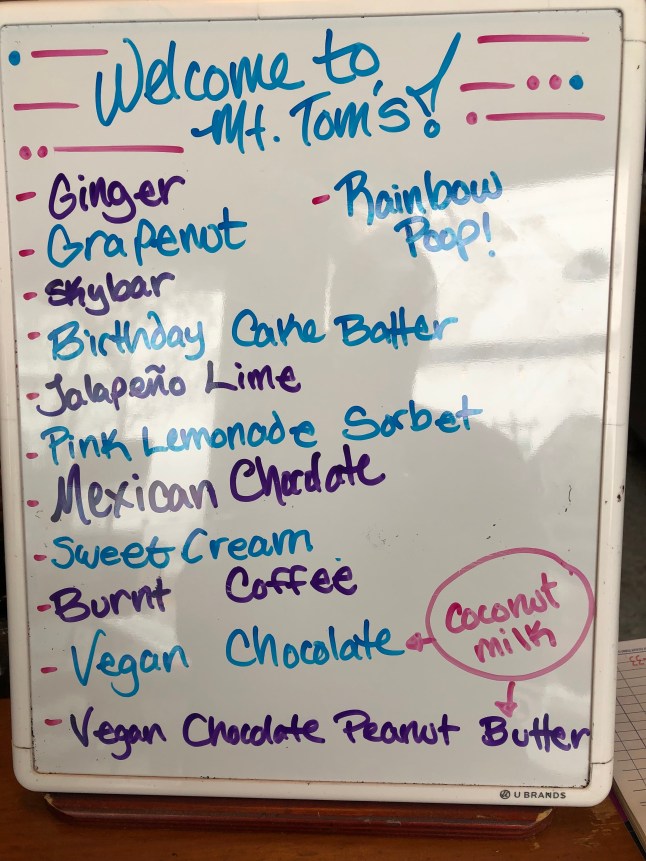 Welcome to
Mt. Tom's!
- Ginger
- Grapenut
- Skybar
- Birthday Cake Batter
- Jalapeño Lime
- Pink Lemonade Sorbet
- Mexican Chocolate
- Sweet Cream
- Burnt Coffee
- Vegan Chocolate
- Vegan Chocolate Peanut Butter
- Rainbow
Poop!
coconut
milk
U BRANDS